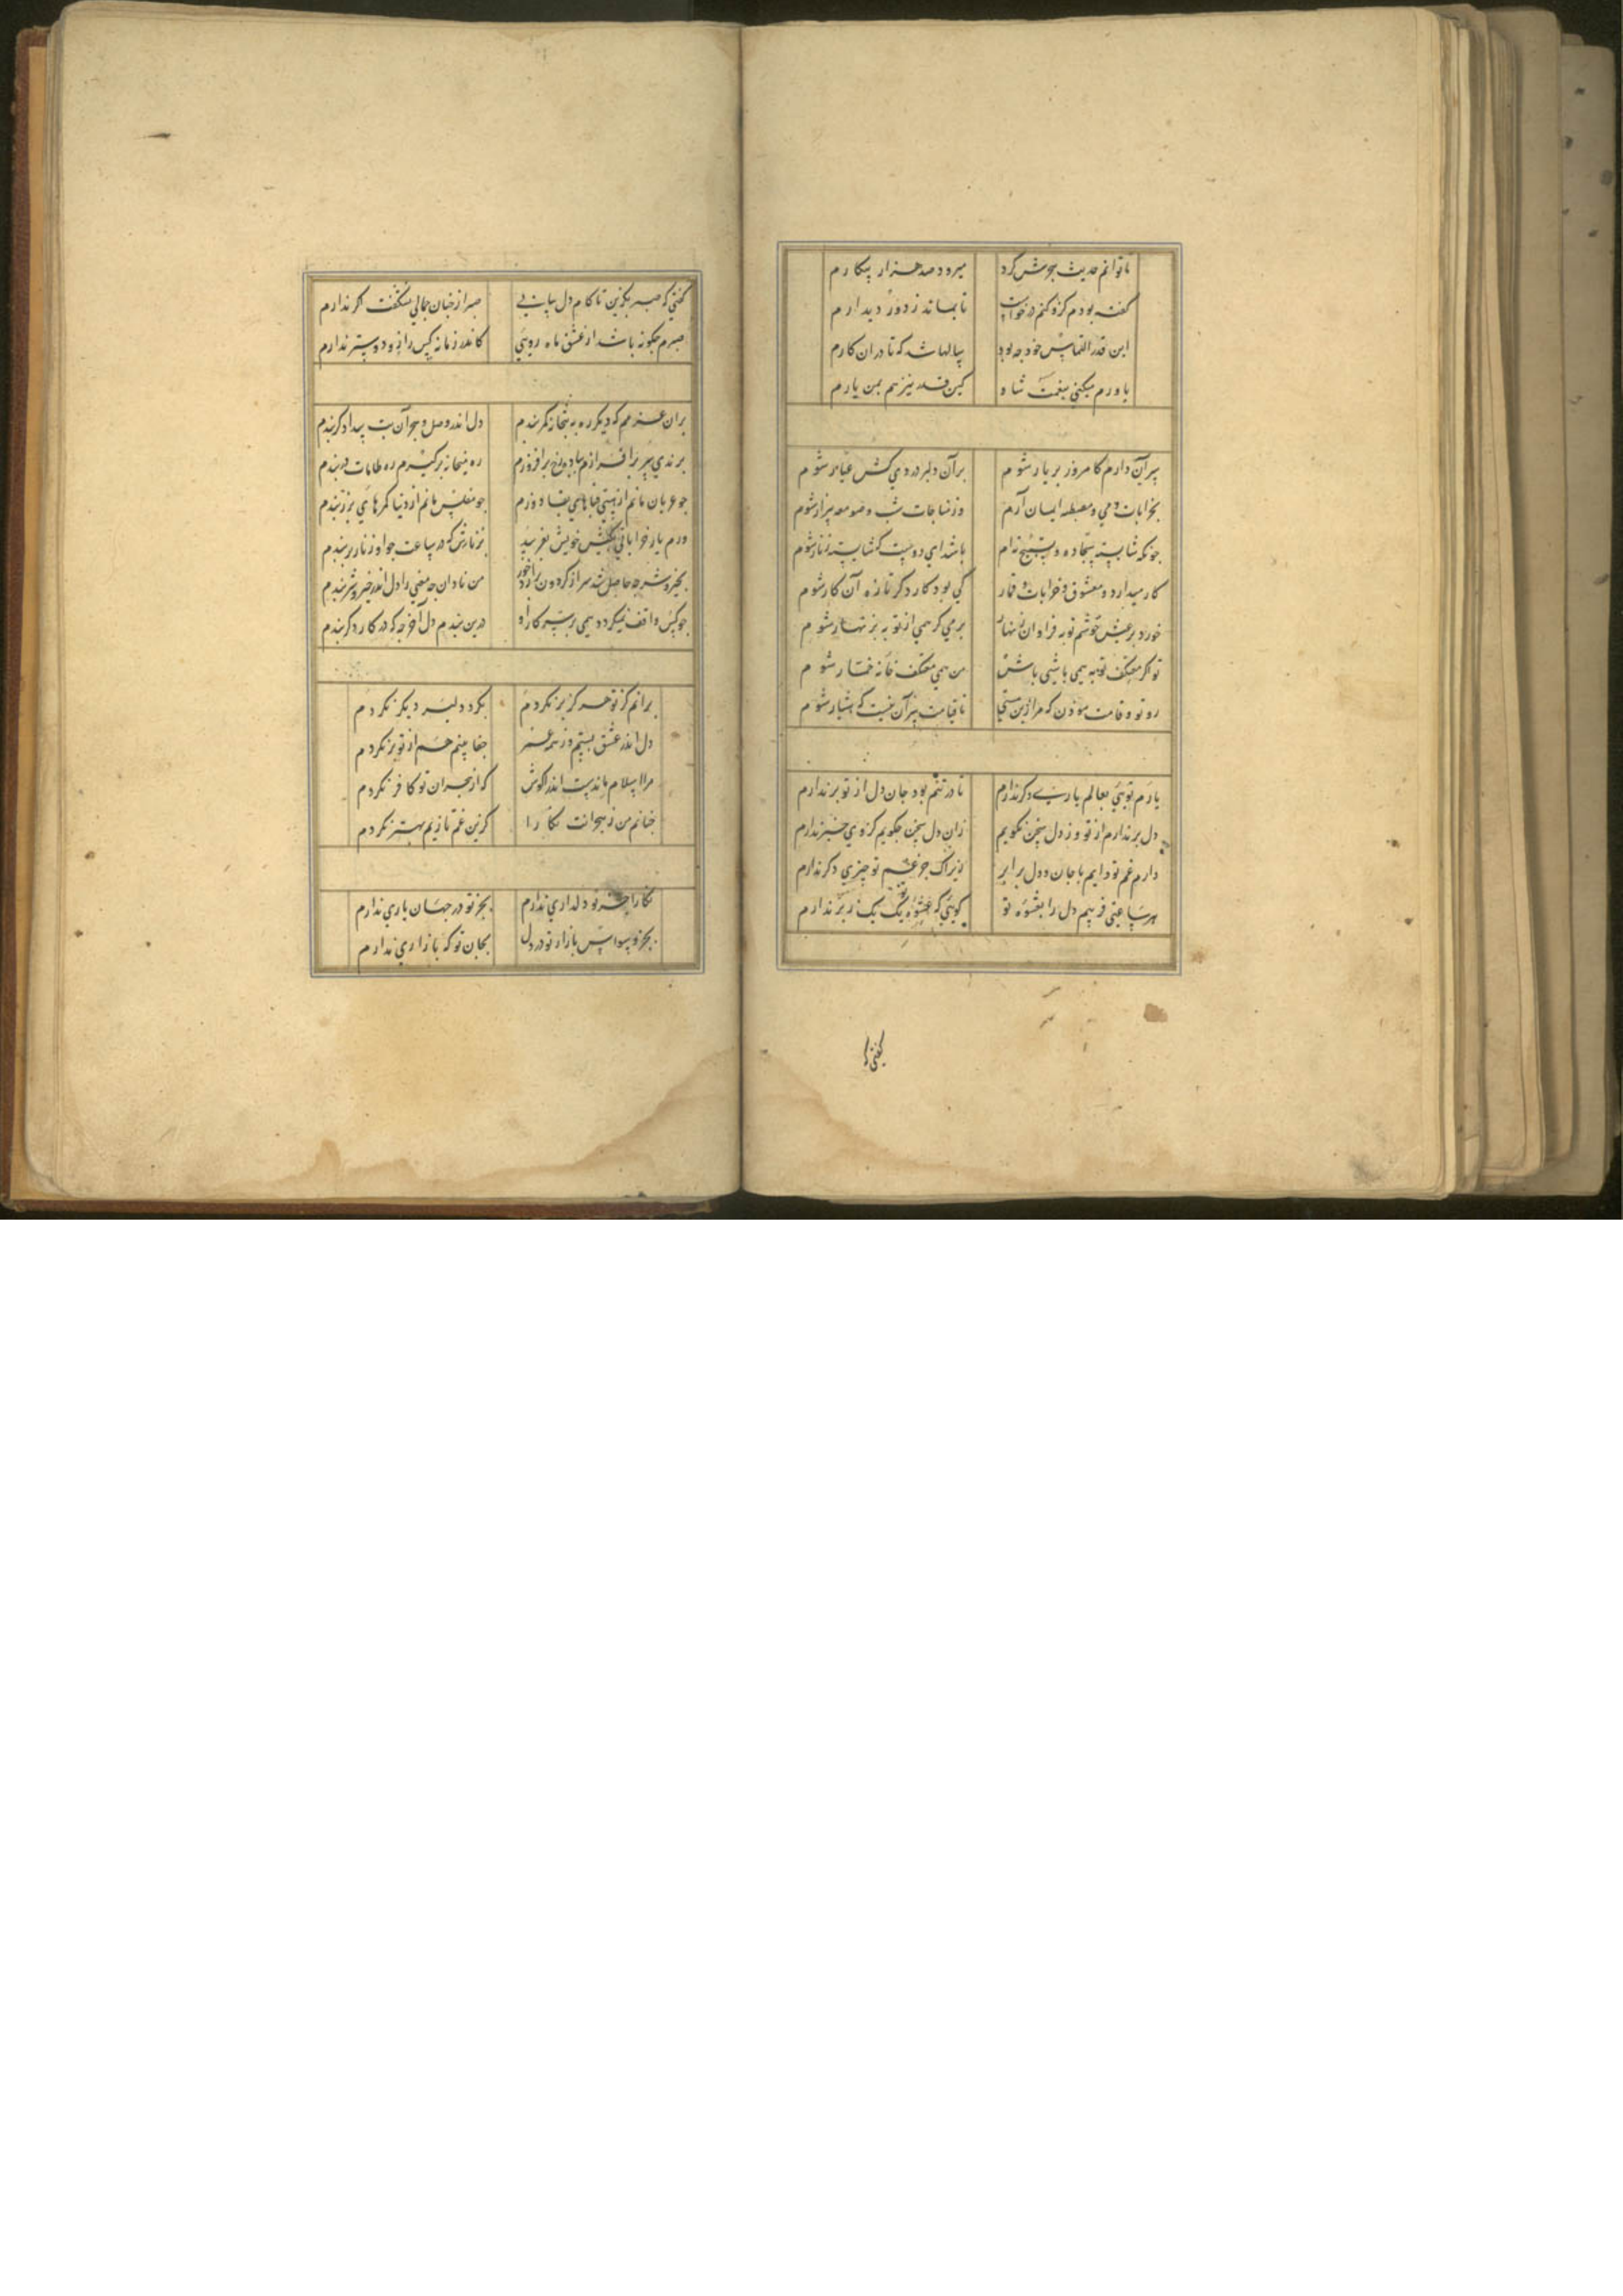 ناتوانم حدیث بخوش کرد میرود صد هزار پیکارم
گفته بودم کزو کنم درخواست تا بماند ز دور دیدارم
این قدر التماس خود چه بود سالها شد که تا در آن کارم
یاورم میکنی بنعمت شاه کین قدر نیز هم بمن یارم
سر آن دارم کامروز بر یار شوم بر آن دلبر دردی کش عیار شوم
بخرابات و می و مصطبه ایمان آرم وز مناجات شب و صومعه بیزار شوم
چونکه شایسته سجاده و تسبیح نه ام باشد ای دوست که شایسته زنار شوم
کار می دارد و معشوق و خرابات و قمار کی بود کار دگر تا زه آن کار شوم
خورد بر عیش خوشم توبه فراوان زنهار بر می گر همی از توبه بزنهار شوم
تو اگر معتکف توبه همی باشی باش من همی معتکف خانه خمار شوم
رو تو و قامت موذن که مرا زین مستی تا قیامت سر آن نیست که هشیار شوم
یارم تویی بعالم یاری دگر ندارم تا در تنم بود جان دل از تو بر ندارم
دل بر ندارم از تو وز دل سخن نگویم زان دل سخن چگویم کز وی خبر ندارم
دارم غم تو دایم با جان و دل برابر زیراک جز غم تو چیزی دگر ندارم
هر ساعتی فریبم دل را بعشوه تو گویی که عشوه تو یک یک ز بر ندارم
گفتی که
گفتی که صبر بگزین تا کام دل بیابی صبر از چنان جمالی نشگفت اگر ندارم
صبرم چگونه باشد از عشق ماه رویی کاندر زمانه کس را زو دوستر ندارم
بر آن عزمم که دیگر ره به میخانه کمر بندم دل اندر وصل و هجر آن بت بیدادگر بندم
برندی سر بر افرازم بباده رخ بر افروزم ره میخانه بر گیرم ره طامات در بندم
چو عریان مانم از هستی قباهای بقا دوزم چو مفلس مانم از دنیا کمرهای بزر بندم
ورم یار خراباتی بکیش خویش بفریبد بزنارش که در ساعت چو او زنار بر بندم
بخیر و شر چه حاصل شد سر از گردون گردان را من نادان چه معنی را دل اندر خیر و شر بندم
چو کس واقف نمیگردد همی بر سر کار او درین بندم دل آخر چه که در کار دگر بندم
بر آنم کز تو هرگز بر نگردم بگرد دلبر دیگر نگردم
دل اندر عشق بستم وز همه عمر جفا بینم هم از تو بر نگردم
مرا اسلام ماندست اندر آغوش که از هجران تو کافر نگردم
چنانم من ز هجرانت نگارا کزین غم تا زیم بهتر نگردم
نگارا جز تو دلداری ندارم بجز تو در جهان یاری ندارم
بجز وسواس بازار تو در دل بجان تو که بازاری ندارم